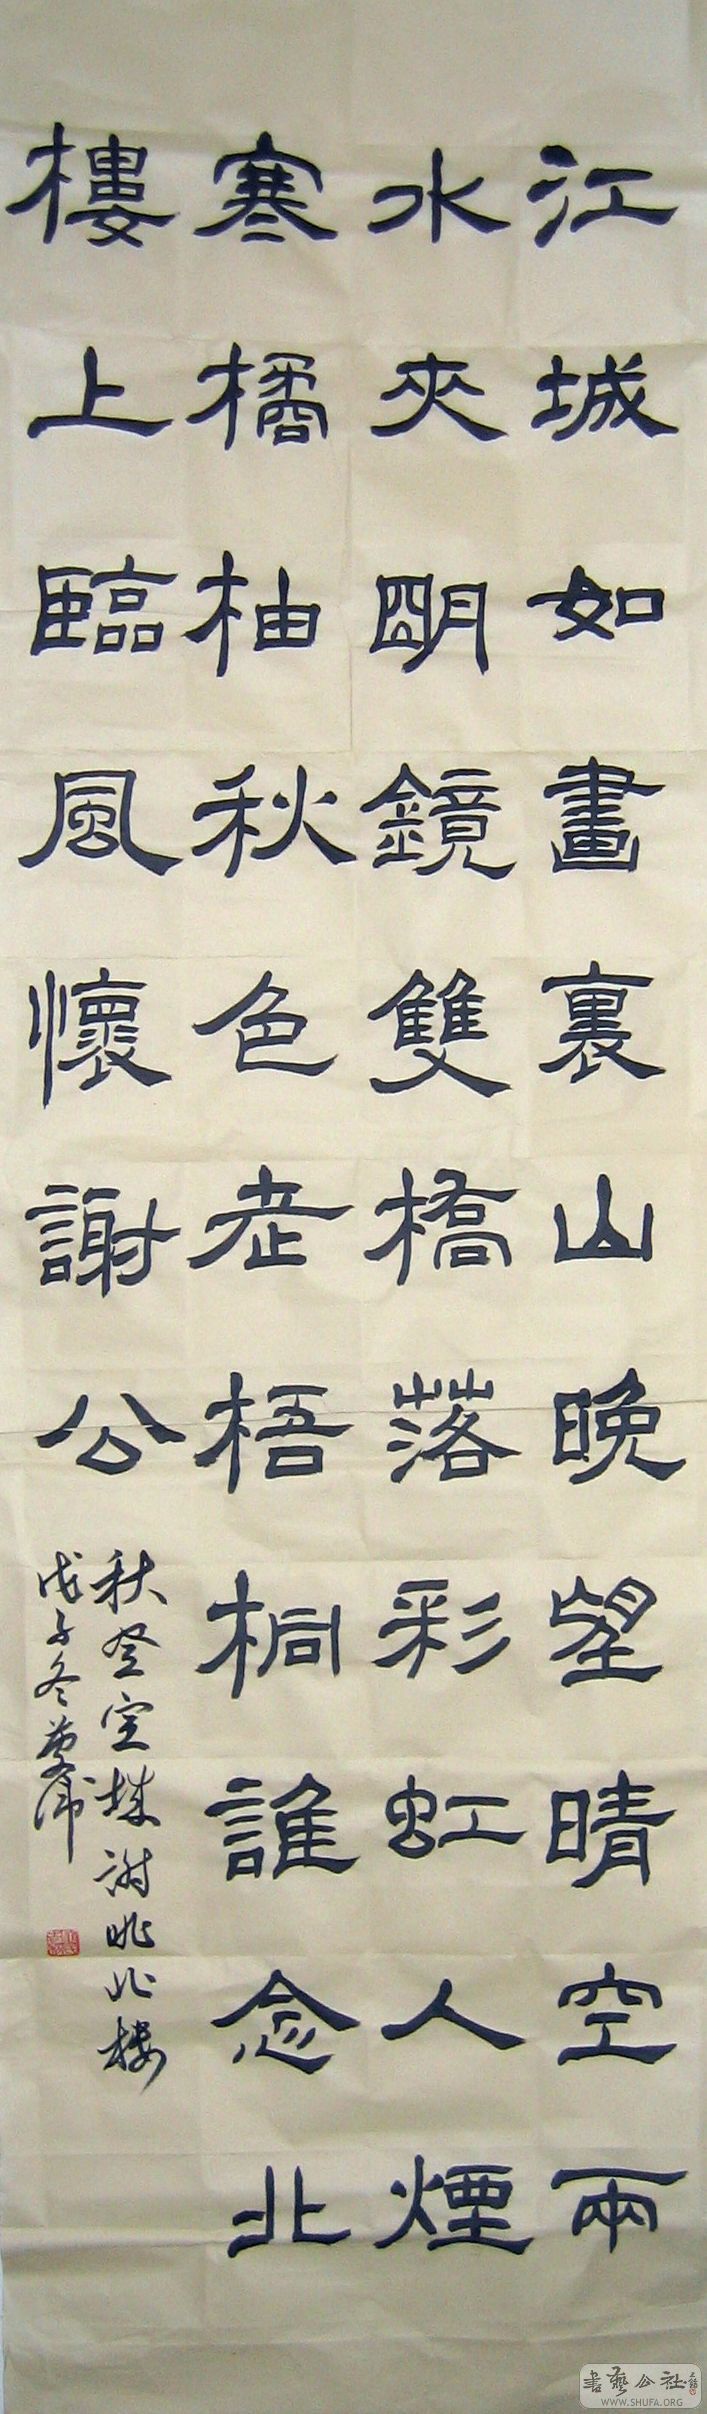 江城如畫裏山晚望晴空兩
水夾明鏡雙橋落彩虹人煙
寒橘柚秋色老梧桐誰念北
樓上臨風懷謝公
秋登宣城謝朓北楼
戊子冬
書藝公社
WWW.SHUFA.ORG